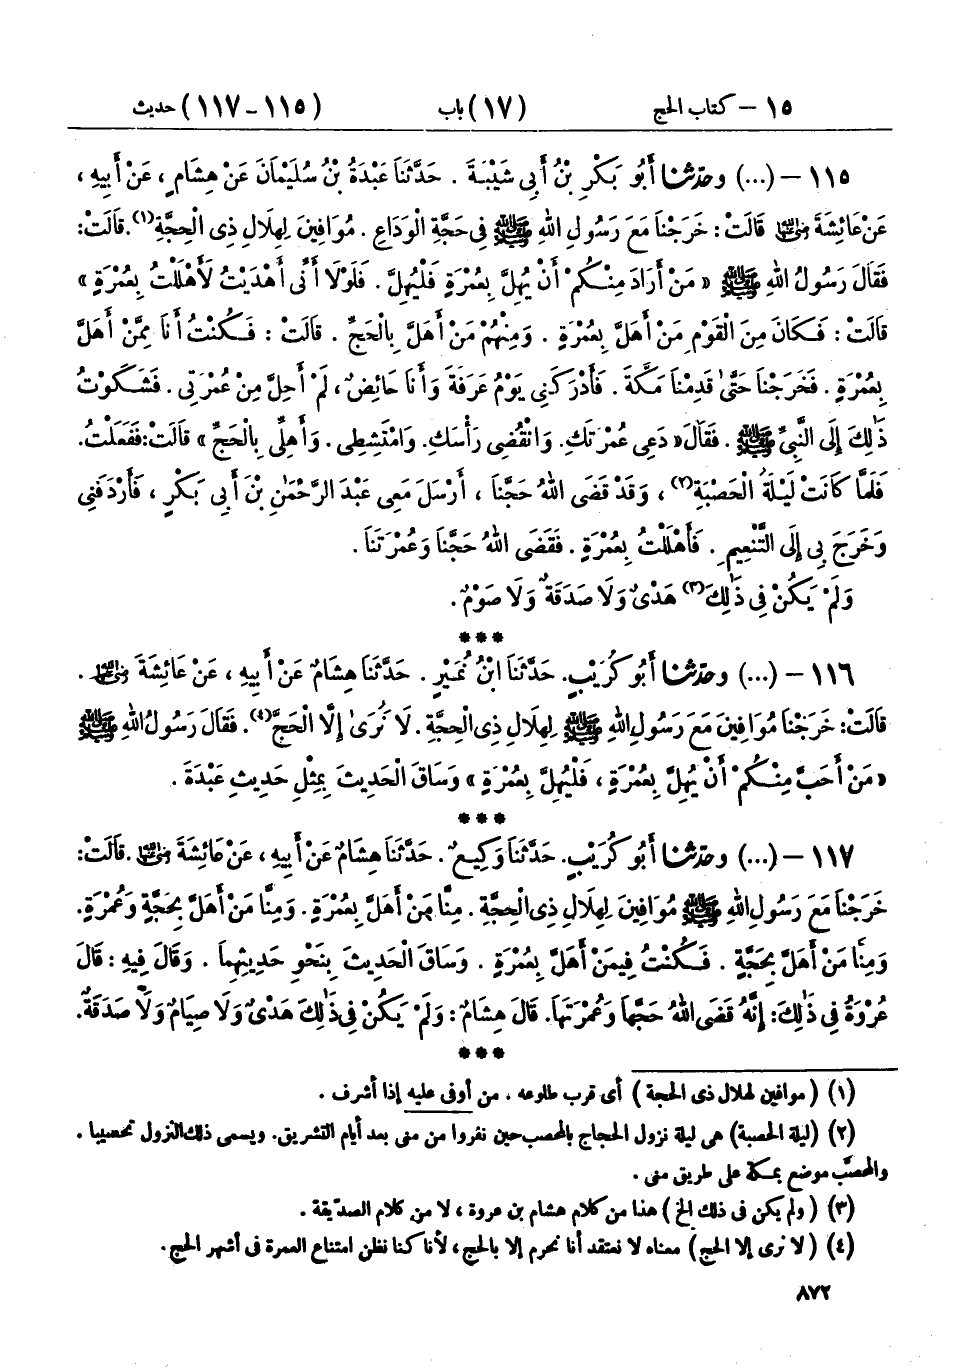 ١٥ – كتاب الحج (١٧) باب (١١٥-١١٧) حديث
١١٥ – (...) وحدّثنا أَبُو بَكْرِ بْنُ أَبِي شَيْبَةَ . حَدَّثَنَا عَبْدَةُ بْنُ سُلَيْمَانَ عَنْ هِشَامٍ ، عَنْ أَبِيهِ ،
عَنْ عَائِشَةَ رضي الله عنها قَالَتْ : خَرَجْنَا مَعَ رَسُولِ اللهِ ﷺ فِي حَجَّةِ الْوَدَاعِ . مُوَافِينَ لِهِلَالِ ذِي الْحِجَّةِ(١). قَالَتْ :
فَقَالَ رَسُولُ اللهِ ﷺ « مَنْ أَرَادَ مِنْكُمْ أَنْ يُهِلَّ بِعُمْرَةٍ فَلْيُهِلَّ . فَلَوْلَا أَنِّي أَهْدَيْتُ لَأَهْلَلْتُ بِعُمْرَةٍ »
قَالَتْ : فَكَانَ مِنَ الْقَوْمِ مَنْ أَهَلَّ بِعُمْرَةٍ . وَمِنْهُمْ مَنْ أَهَلَّ بِالْحَجِّ . قَالَتْ : فَكُنْتُ أَنَا مِمَّنْ أَهَلَّ
بِعُمْرَةٍ . فَخَرَجْنَا حَتَّى قَدِمْنَا مَكَّةَ . فَأَدْرَكَنِي يَوْمُ عَرَفَةَ وَأَنَا حَائِضٌ ، لَمْ أَحِلَّ مِنْ عُمْرَتِي . فَشَكَوْتُ
ذَٰلِكَ إِلَى النَّبِيِّ ﷺ . فَقَالَ « دَعِي عُمْرَتَكِ . وَانْقُضِي رَأْسَكِ. وَامْتَشِطِي . وَأَهِلِّي بِالْحَجِّ » قَالَتْ: فَفَعَلْتُ.
فَلَمَّا كَانَتْ لَيْلَةُ الْحَصْبَةِ(٢) ، وَقَدْ قَضَى اللهُ حَجَّنَا ، أَرْسَلَ مَعِي عَبْدَ الرَّحْمَٰنِ بْنَ أَبِي بَكْرٍ ، فَأَرْدَفَنِي
وَخَرَجَ بِي إِلَى التَّنْعِيمِ . فَأَهْلَلْتُ بِعُمْرَةٍ . فَقَضَى اللهُ حَجَّنَا وَعُمْرَتَنَا .
وَلَمْ يَكُنْ فِي ذَٰلِكَ(٣) هَدْيٌ وَلَا صَدَقَةٌ وَلَا صَوْمٌ .
***
١١٦ – (...) وحدّثنا أَبُو كُرَيْبٍ. حَدَّثَنَا ابْنُ نُمَيْرٍ . حَدَّثَنَا هِشَامٌ عَنْ أَبِيهِ ، عَنْ عَائِشَةَ رضي الله عنها .
قَالَتْ : خَرَجْنَا مُوَافِينَ مَعَ رَسُولِ اللهِ ﷺ لِهِلَالِ ذِي الْحِجَّةِ . لَا نُرَى إِلَّا الْحَجَّ(٤). فَقَالَ رَسُولُ اللهِ ﷺ
« مَنْ أَحَبَّ مِنْكُمْ أَنْ يُهِلَّ بِعُمْرَةٍ ، فَلْيُهِلَّ بِعُمْرَةٍ » وَسَاقَ الْحَدِيثَ بِمِثْلِ حَدِيثِ عَبْدَةَ .
***
١١٧ – (...) وحدّثنا أَبُو كُرَيْبٍ. حَدَّثَنَا وَكِيعٌ . حَدَّثَنَا هِشَامٌ عَنْ أَبِيهِ ، عَنْ عَائِشَةَ رضي الله عنها . قَالَتْ :
خَرَجْنَا مَعَ رَسُولِ اللهِ ﷺ مُوَافِينَ لِهِلَالِ ذِي الْحِجَّةِ . مِنَّا مَنْ أَهَلَّ بِعُمْرَةٍ . وَمِنَّا مَنْ أَهَلَّ بِحَجَّةٍ وَعُمْرَةٍ.
وَمِنَّا مَنْ أَهَلَّ بِحَجَّةٍ . فَكُنْتُ فِيمَنْ أَهَلَّ بِعُمْرَةٍ . وَسَاقَ الْحَدِيثَ بِنَحْوِ حَدِيثِهِمَا . وَقَالَ فِيهِ : قَالَ
عُرْوَةُ فِي ذَٰلِكَ : إِنَّهُ قَضَى اللهُ حَجَّهَا وَعُمْرَتَهَا. قَالَ هِشَامٌ : وَلَمْ يَكُنْ فِي ذَٰلِكَ هَدْيٌ وَلَا صِيَامٌ وَلَا صَدَقَةٌ.
***
(١) ( موافين لهلال ذى الحجة ) أى قرب طلوعه . من أوفى عليه إذا أشرف .
(٢) (ليلة الحصبة) هى ليلة نزول الحجاج بالمحصب حين نفروا من منى بعد أيام التشريق. ويسمى ذلك النزول تحصيبا .
والمحصَّب موضع بمكة على طريق منى .
(٣) ( ولم يكن فى ذلك الخ ) هذا من كلام هشام بن عروة ، لا من كلام الصديقة .
(٤) ( لا نرى إلا الحج ) معناه لا نعتقد أنا نحرم إلا بالحج ، لأنا كنا نظن امتناع العمرة فى أشهر الحج .
٨٧٢